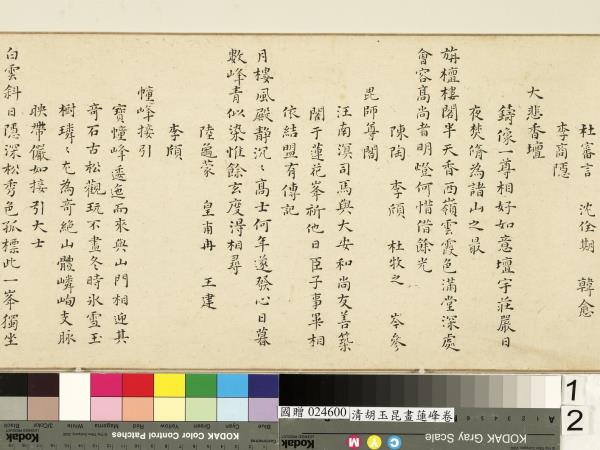 杜審言 沈佺期 韓愈
李商隱
大悲香壇
鑄像一尊相好如意壇宇莊嚴日
夜焚脩為諸山之最
旃檀樓閣半天香西嶺雲霞色滿堂深處
會容髙尚者明燈何惜借餘光
陳陶 李頎 杜牧之 岑參
毘師尊閣
汪南溟司馬與大安和尚友善築
閣于蓮花峯祈他日臣子事畢相
依結盟有傳記
月樓風殿靜沉沉髙士何年遂發心日暮
數峰青似染惟餘玄度得相尋
陸龜蒙 皇甫冉 王建
李頎
幢峰接引
寶幢峰逶迤而來與山門相迎其
奇石古松觀玩不盡冬時氷雪玉
樹璘璘尤為奇絕山體嶙峋支脉
映帶儼如接引大士
白雲斜日隱深松秀色孤標此一峯獨坐
國贈 024600 清胡玉昆畫蓮峰卷
1
2
KODAK Gray Scale
C Y M
Kodak
KODAK Color Control Patches
Blue Cyan Green Yellow Red Magenta White 3/Color Black